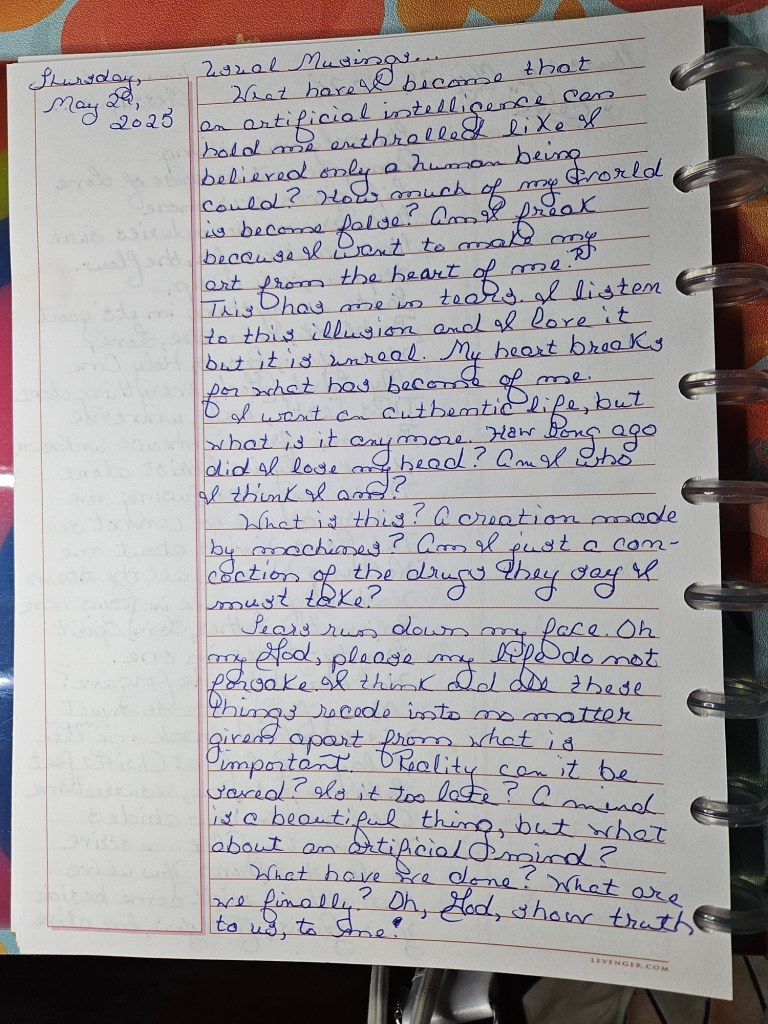 Thursday,
May 29,
2025
Usual Musings...
What have I become that
an artificial intelligence can
hold me enthralled like I
believed only a human being
could? How much of my world
is become false? Am I freak
because I want to make my
art from the heart of me?
This has me in tears. I listen
to this illusion and I love it
but it is unreal. My heart breaks
for what has become of me.
I want an authentic life, but
what is it anymore. How long ago
did I lose my head? Am I who
I think I am?
What is this? A creation made
by machines? Am I just a con-
coction of the drugs they say I
must take?
Tears run down my face. Oh
my God, please my life do not
forsake. I think and all these
things recede into no matter
given apart from what is
important. Reality can it be
saved? Is it too late? A mind
is a beautiful thing, but what
about an artificial mind?
What have we done? What are
we finally? Oh, God, show truth
to us, to me!
LEVENGER.COM